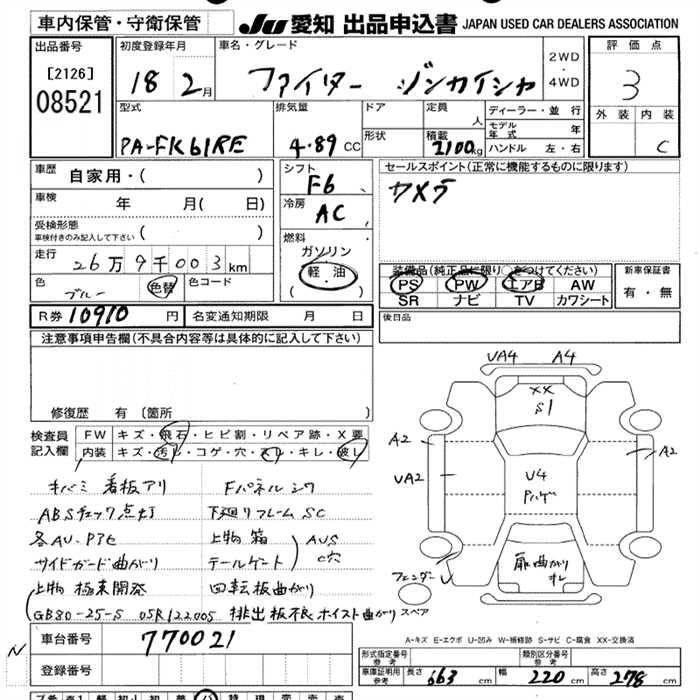 車内保管・守衛保管
JU 愛知 出品申込書 JAPAN USED CAR DEALERS ASSOCIATION
出品番号
[2126]
08521
初度登録年月
18 2月
車名・グレード
ファイター ジンカイシャ
2WD
・
4WD
評価点
3
外装 内装
C
型式
PA-FK61RE
排気量
4.89 CC
ドア
形状
定員
人
積載
2100kg
ディーラー・並行
モデル年式 年
ハンドル 左・右
車歴
自家用・( )
車検
年 月( 日)
受検形態
車検付きのみ記入して下さい ( )
走行
26万9千003km
色
ブルー
色替
色コード
R券 10910 円
名変通知期限 月 日
シフト
F6
冷房
AC
燃料
ガソリン
軽油
( ・ )
セールスポイント(正常に機能するものに限ります)
カメラ
装備品(純正品に限り○をつけてください)
PS PW エアB AW
SR ナビ TV カワシート
新車保証書
有・無
後日品
注意事項申告欄(不具合内容等は具体的に記入して下さい)
修復歴 有 〔箇所 〕
検査員
記入欄
FW キズ・飛石・ヒビ割・リペア跡・X要
内装 キズ・汚レ・コゲ・穴・スレ・キレ・破レ
キバミ 看板アリ
ABSチェック点灯
各AU.P3E
サイドガード曲がり
上物 極東開発
GB80-25-S 05R122005
Fパネルシワ
下廻リフレームSC
上物 箱
テールゲート
AUS
C穴
回転板曲がり
排出板不良ホイスト曲がり
UA4 A4
XX
S1
A2
UA2
A2
U4
Pハゲ
扉曲がり
キレ
フェンダー
スペア
車台番号 770021
N
登録番号
A-キズ E-エクボ U-凹み W-補修跡 S-サビ C-腐食 XX-交換済
形式指定番号
参考
類別区分番号
参考
車庫証明用
参考
長さ 663 cm 幅 220 cm 高さ 278 cm